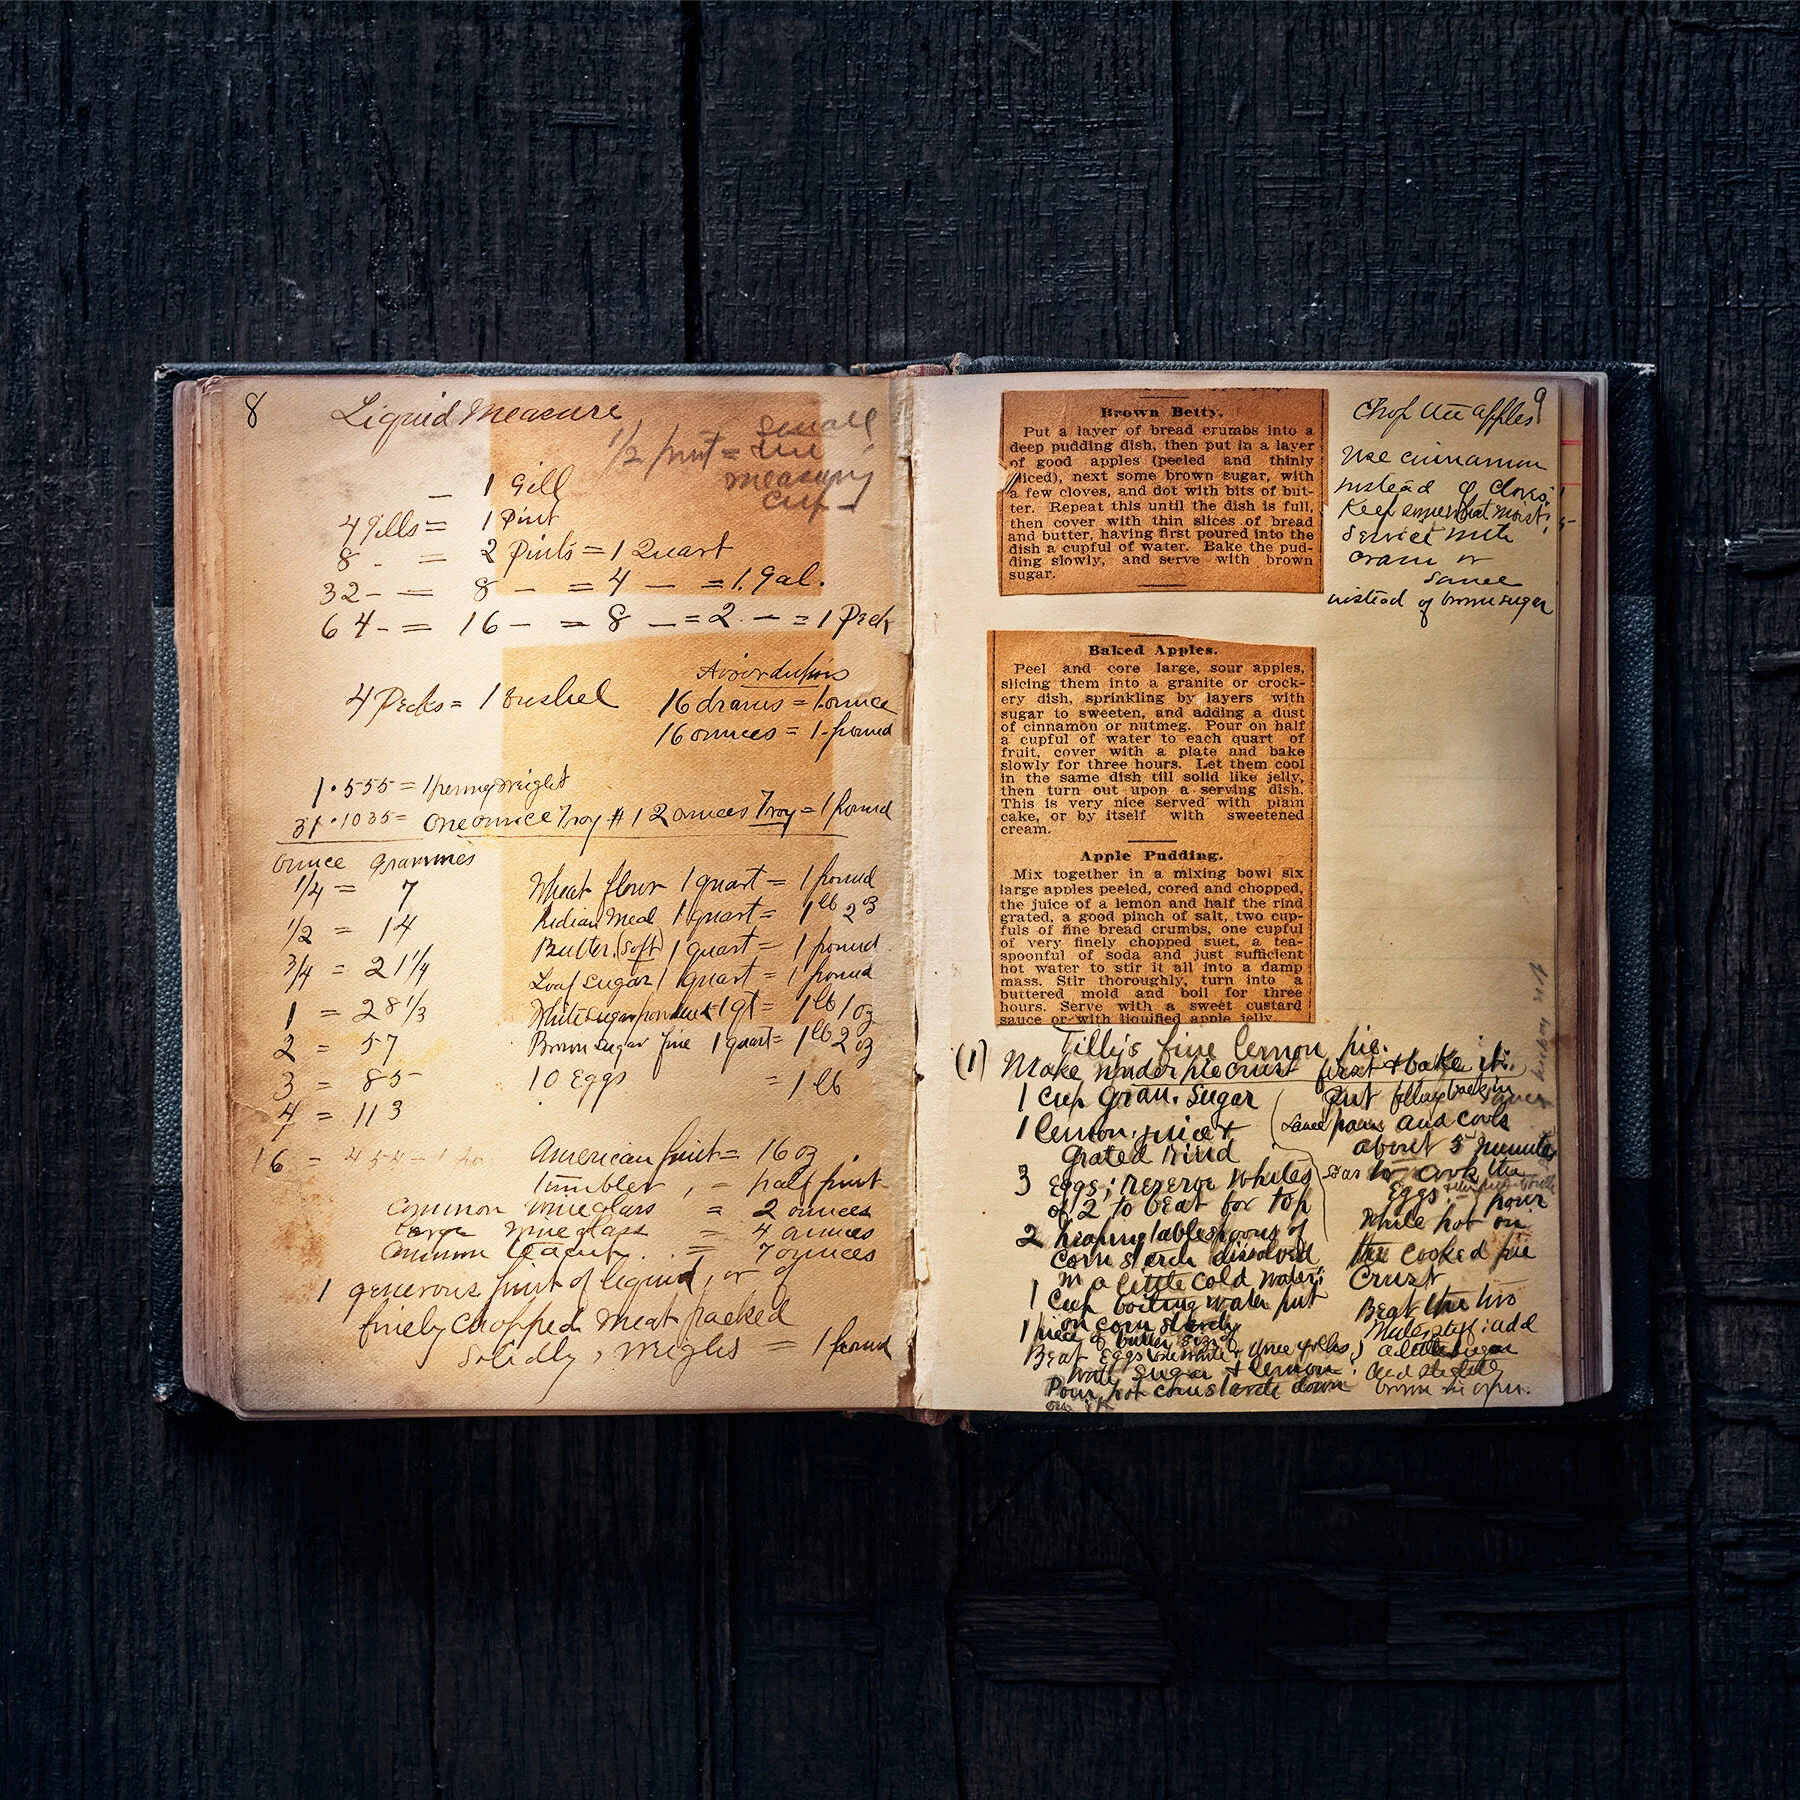 8 Liquid Measure
1/2 pint = small
tin
measuring
cup
1 Gill
4 Gills = 1 Pint
8 - = 2 Pints = 1 Quart
32 - = 8 - = 4 - = 1 Gal.
64 - = 16 - = 8 - = 2 - = 1 Peck
4 Pecks = 1 bushel
Avoirdupois
16 drams = 1 ounce
16 ounces = 1 pound
1.555 = 1 pennyweight
31.1035 = one ounce Troy # 12 ounces Troy = 1 pound
ounce grammes
1/4 = 7
1/2 = 14
3/4 = 21 1/4
1 = 28 1/3
2 = 57
3 = 85
4 = 113
16 = 454 = 1
Wheat flour 1 quart = 1 pound
Indian Meal 1 quart = 1 lb 2 oz
Butter (soft) 1 quart = 1 pound
Loaf sugar 1 quart = 1 pound
White sugar powdered 1 qt = 1 lb 1 oz
Brown sugar fine 1 quart = 1 lb 2 oz
10 Eggs = 1 lb
American pint = 16 oz.
Tumbler, = half pint
Common wineglass = 2 ounces
Large wineglass = 4 ounces
Common teacup . . = 7 ounces
1 generous pint of liquid, or of
finely chopped meat packed
solidly, weighs = 1 pound
9
Brown Betty.
Put a layer of bread crumbs into a
deep pudding dish, then put in a layer
of good apples (peeled and thinly
sliced), next some brown sugar, with
a few cloves, and dot with bits of but-
ter. Repeat this until the dish is full,
then cover with thin slices of bread
and butter, having first poured into the
dish a cupful of water. Bake the pud-
ding slowly, and serve with brown
sugar.
Chop the apples
Use cinnamon
instead of cloves.
Keep somewhat moist.
Serve with
cream or
sauce
instead of brown sugar
Baked Apples.
Peel and core large, sour apples,
slicing them into a granite or crock-
ery dish, sprinkling by layers with
sugar to sweeten, and adding a dust
of cinnamon or nutmeg. Pour on half
a cupful of water to each quart of
fruit, cover with a plate and bake
slowly for three hours. Let them cool
in the same dish till solid like jelly,
then turn out upon a serving dish.
This is very nice served with plain
cake, or by itself with sweetened
cream.
Apple Pudding.
Mix together in a mixing bowl six
large apples peeled, cored and chopped,
the juice of a lemon and half the rind
grated, a good pinch of salt, two cup-
fuls of fine bread crumbs, one cupful
of very finely chopped suet, a tea-
spoonful of soda and just sufficient
hot water to stir it all into a damp
mass. Stir thoroughly, turn into a
buttered mold and boil for three
hours. Serve with a sweet custard
sauce or with liquified apple jelly.
Tilly's fine lemon pie.
(1) Make under pie crust first & bake it.
1 cup gran. Sugar
1 lemon, juice &
grated rind
3 Eggs; reserve whites
of 2 to beat for top
2 heaping tablespoons of
corn starch dissolved
in a little cold water;
1 cup boiling water put
on corn starch
1 piece of butter size of
Beat eggs one white & three yolks,
with sugar & lemon.
Pour hot cornstarch down
on it
Put filling back in
sauce pan and cook
about 5 minutes
so as to cook the
eggs. pour
while hot on
the cooked pie
crust
Beat the two
whites stiff; add
a little sugar
and slightly
brown in open.